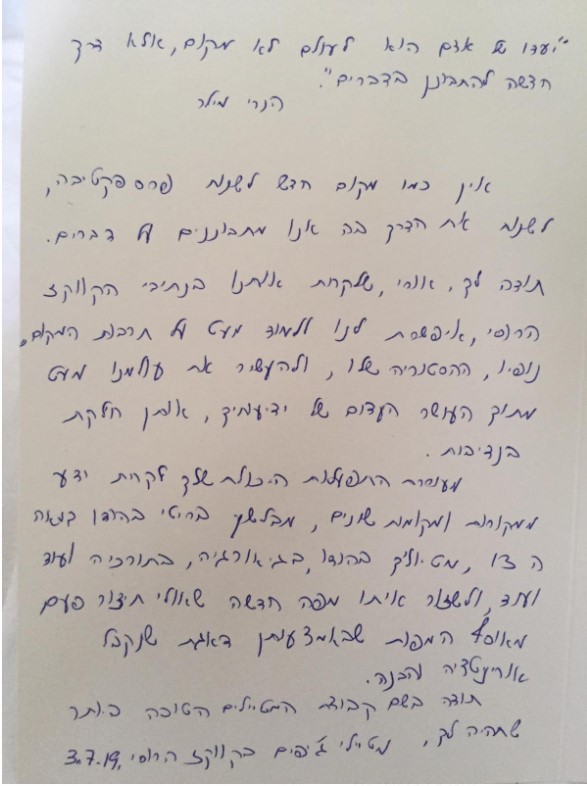 "יעדו של אדם הוא לעולם לא מקום, אלא דרך
חדשה להתבונן בדברים".
הנרי מילר
אין כמו מקום חדש לשנות פרספקטיבה,
לשנות את הדרך בה אנו מתבוננים על דברים.
תודה לך, אורי, שלקחת אותנו בנתיבי הקווקז
הרוסי, איפשרת לנו ללמוד מעט על תרבות המקום,
נופיו, ההסטוריה שלו, ולהעשיר את עולמנו מעט
מתוך העושר העצום של ידיעותיך, אותן חלקת
בנדיבות.
מעוררת התפעלות היכולת שלך לקחת ידע
ממקורות ומקומות שונים, מבלשץ בריטי בהודו במאה
ה 19, מטיוליך בהודו, בגיאורגיה, בתורכיה ועוד
ועוד, ולשזור איתו מפה חדשה שאולי תיצור פעם
מאוסף המפות שבאמצעותן דאגת שנקבל
אורינטציה והבנה.
תודה בשם קבוצת המטיילים הטובה ביותר
שהיתה לך, מטיילי ג'יפים בקווקז הרוסי, 3.7.19